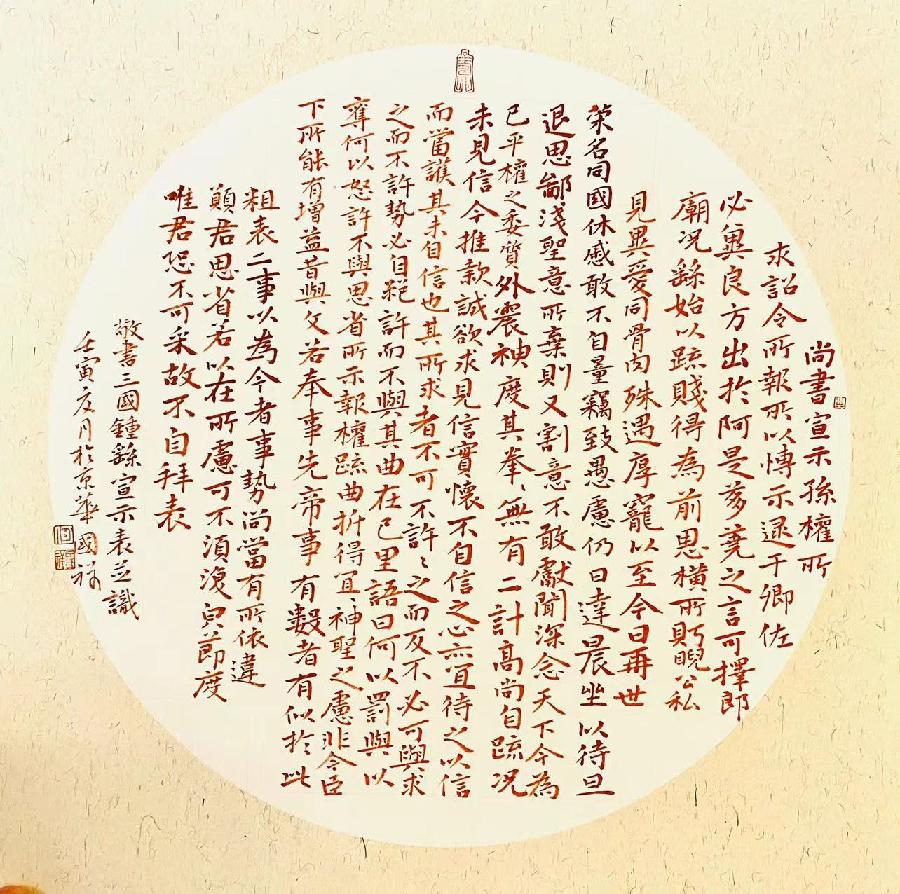 尚書宣示孫權所
求詔令所報所以博示逮于卿佐
必冀良方出於阿是芻蕘之言可擇郎
廟況繇始以疏賤得為前恩橫所眄睨公私
見異愛同骨肉殊遇厚寵以至今日再世
榮名同國休慼敢不自量竊致愚慮仍日達晨坐以待旦
退思鄙淺聖意所棄則又割意不敢獻聞深念天下今為
已平權之委質外震神度其拳〻無有二計高尚自疏況
未見信今推款誠欲求見信實懷不自信之心亦宜待之以信
而當護其未自信也其所求者不可不許〻之而反不必可與求
之而不許勢必自絕許而不與其曲在己里語曰何以罰與以
奪何以怒許不與思省所示報權疏曲折得宜〻神聖之慮非今臣
下所能有增益昔與文若奉事先帝事有數者有似於此
粗表二事以為今者事勢尚當有所依違
願君思省若以在所慮可不須復皃節度
唯君恐不可采故不自拜表
敬書三國鍾繇宣示表並識
壬寅夏月於京華國祥